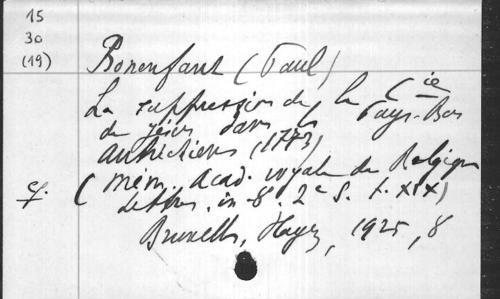 15
30
(19)
Bonenfant (Paul)
La suppression de la Cie
de Jésus dans les Pays-Bas
autrichiens (1773)
cf. (Mém. Acad. royale de Belgique
Lettres. in-8. 2e S. t. XIX)
Bruxelles, Hayez, 1925, 8